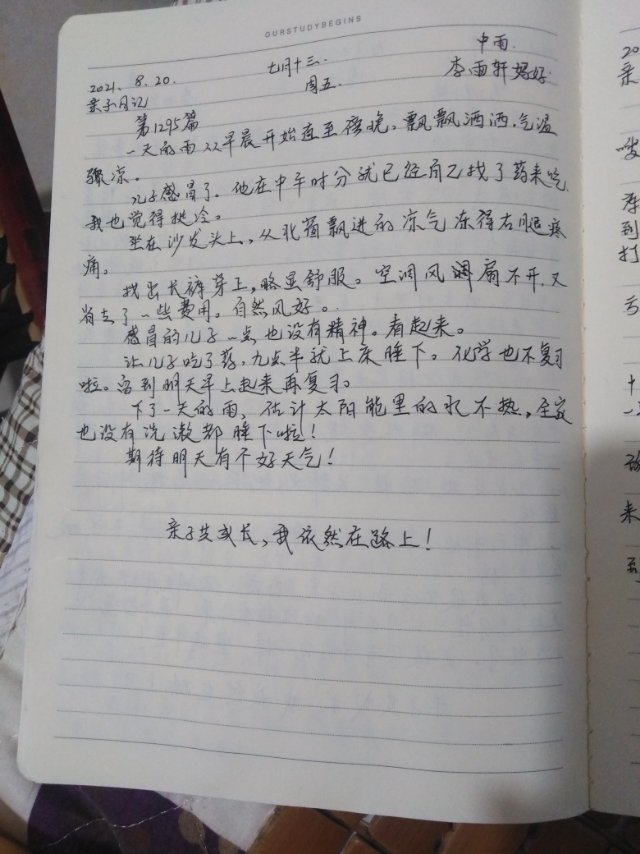 OURSTUDYBEGINS
中雨.
2021. 8. 20. 七月十三. 李雨轩妈妈.
亲子日记 周五.
第1295篇
一天的雨从早晨开始直至傍晚。飘飘洒洒.气温
骤凉。
儿子感冒了。他在中午时分就已经自己找了药来吃.
我也觉得挺冷。
坐在沙发头上,从北窗飘进的凉气冻得右腿疼
痛。
找出长裤穿上,略显舒服。空调风扇不开.又
省去了一些费用。自然风好。
感冒的儿子一点也没有精神。看起来。
让儿子吃了药,九点半就上床睡下。化学也不复习
啦。等到明天早上起来再复习。
下了一天的雨,估计太阳能里的水不热,全家
也没有洗漱都睡下啦!
期待明天有个好天气!
亲子共成长,我依然在路上!
20
亲
到
打
十
来